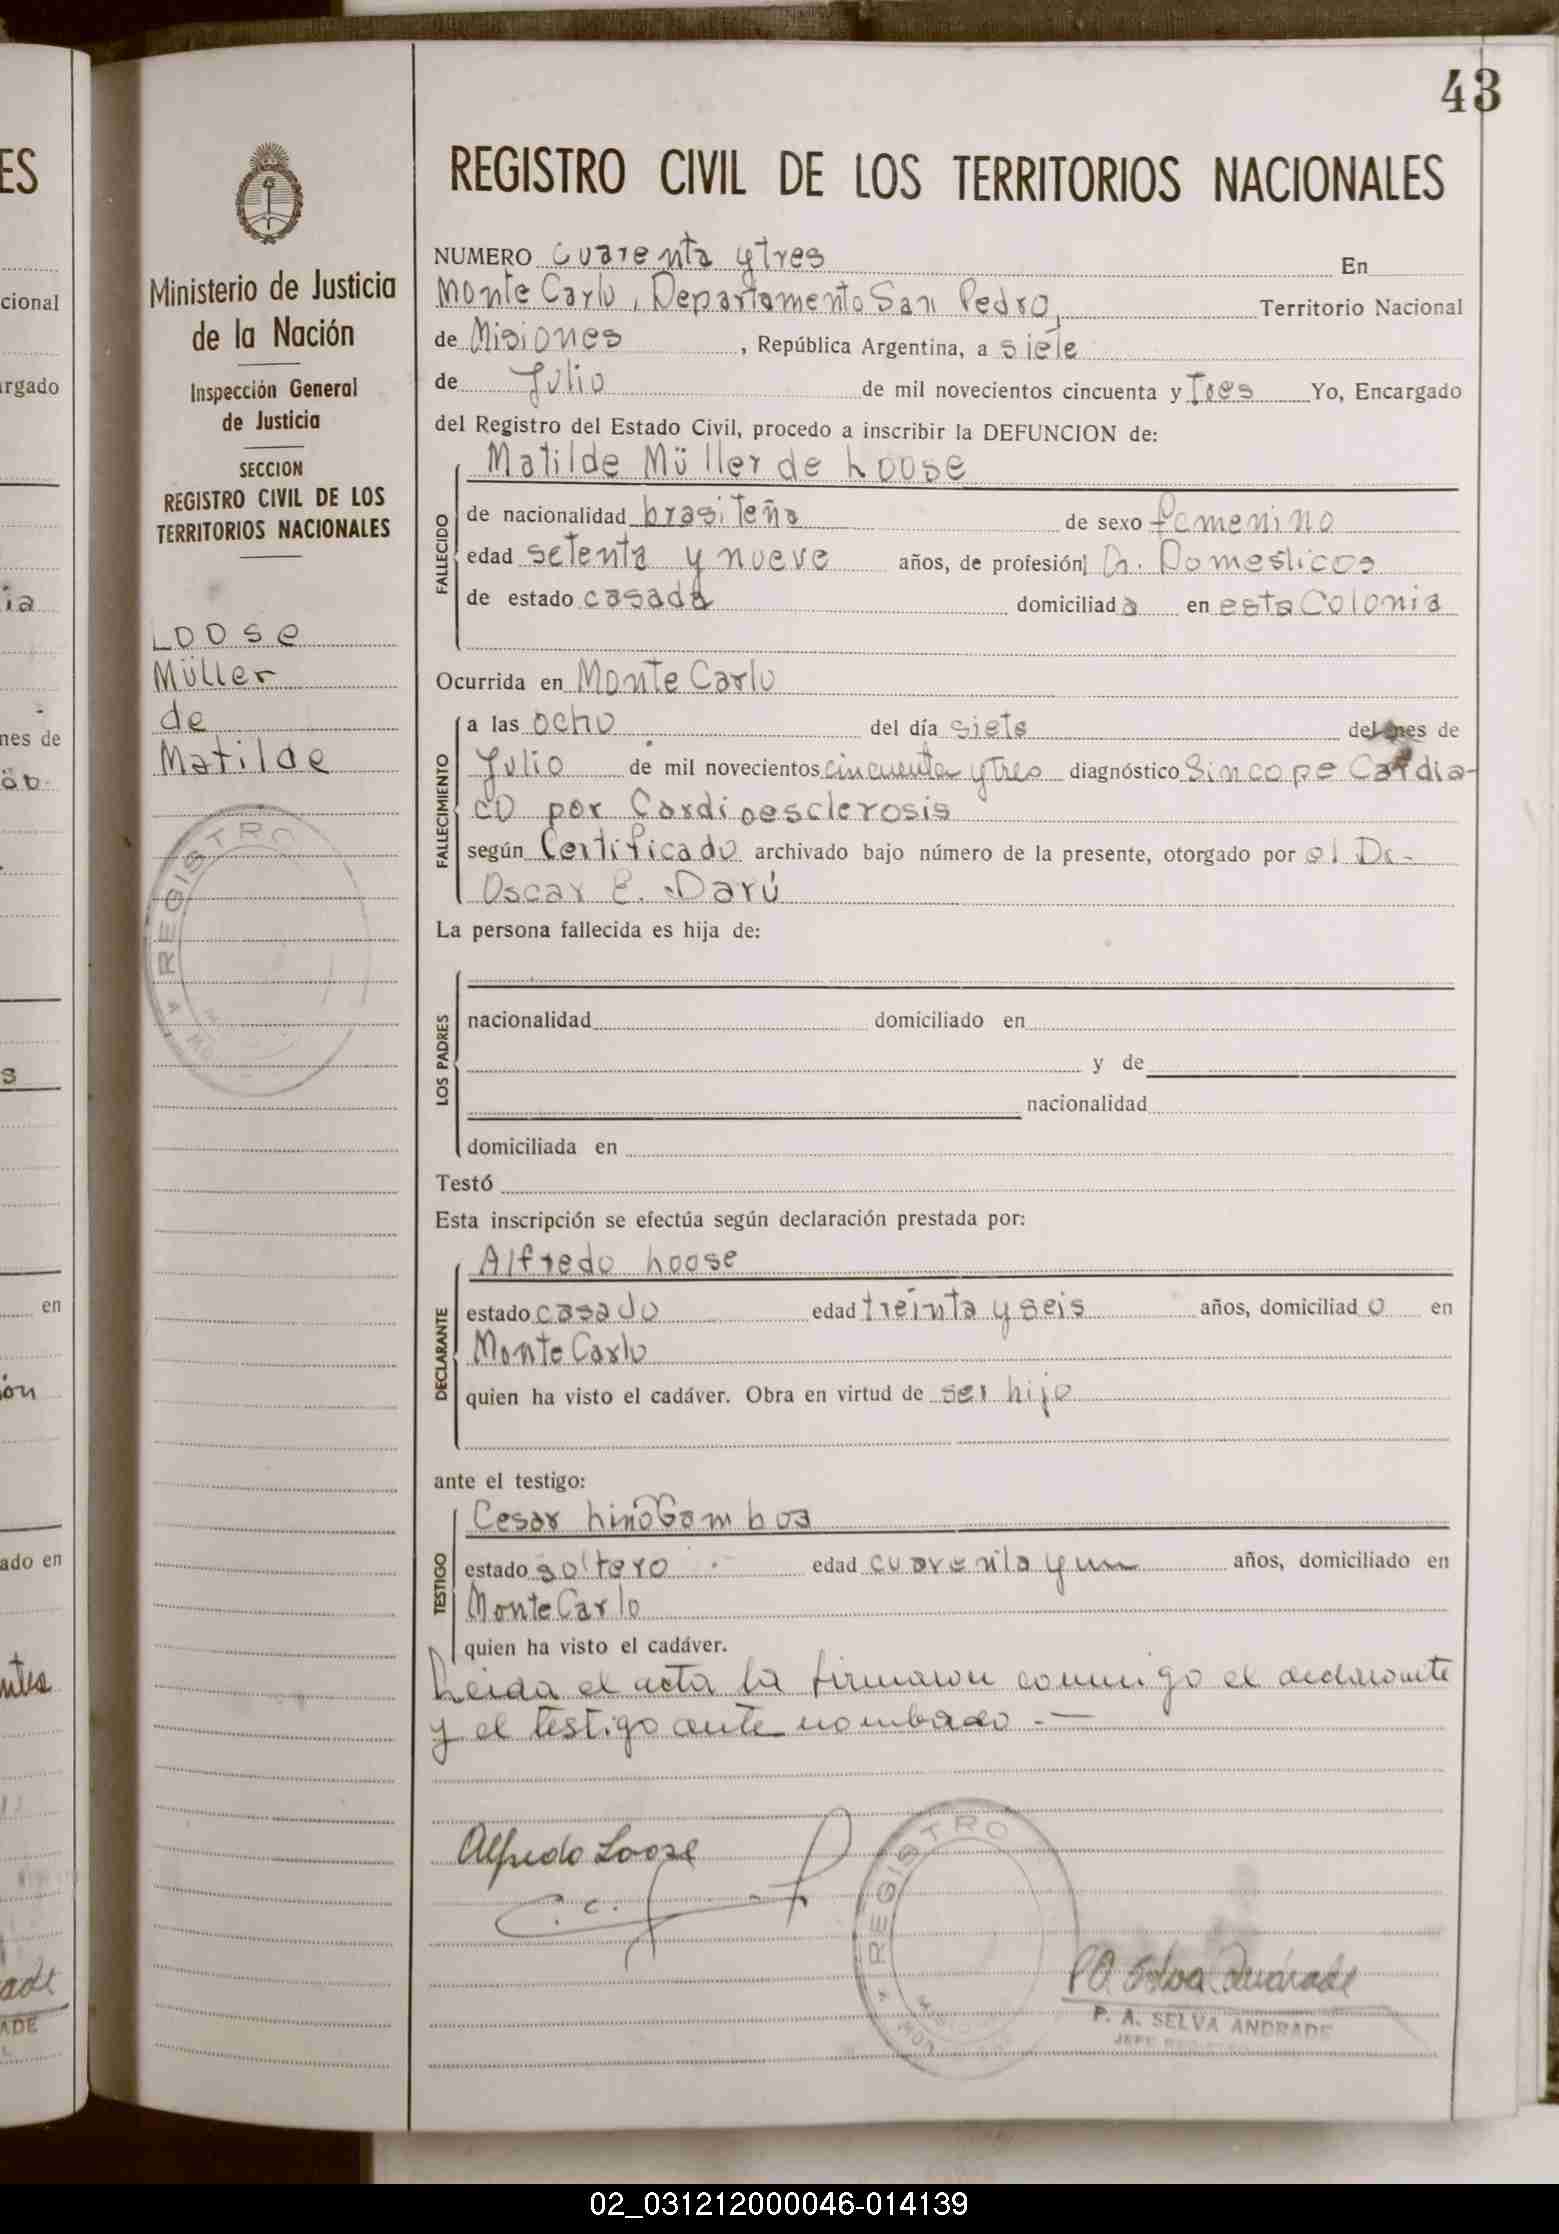 43
REGISTRO CIVIL DE LOS TERRITORIOS NACIONALES
Ministerio de Justicia
de la Nación
Inspección General
de Justicia
SECCION
REGISTRO CIVIL DE LOS
TERRITORIOS NACIONALES
Loose
Müller
de
Matilde
REGISTRO
NUMERO cuarenta y tres En
Monte Carlo, Departamento San Pedro, Territorio Nacional
de Misiones, República Argentina, a siete
de Julio de mil novecientos cincuenta y Tres Yo, Encargado
del Registro del Estado Civil, procedo a inscribir la DEFUNCION de:
FALLECIDO
Matilde Müller de Loose
de nacionalidad brasileña de sexo femenino
edad setenta y nueve años, de profesión Q. Domesticos
de estado casada domiciliada en esta Colonia
Ocurrida en Monte Carlo
FALLECIMIENTO
a las ocho del día siete del mes de
Julio de mil novecientos cincuenta y tres diagnóstico Sincope Cardia-
co por Cardioesclerosis
según Certificado archivado bajo número de la presente, otorgado por el Dr.
Oscar E. Darú
La persona fallecida es hija de:
LOS PADRES
nacionalidad domiciliado en
y de
nacionalidad
domiciliada en
Testó
Esta inscripción se efectúa según declaración prestada por:
DECLARANTE
Alfredo Loose
estado casado edad treinta y seis años, domiciliado en
Monte Carlo
quien ha visto el cadáver. Obra en virtud de ser hijo
ante el testigo:
TESTIGO
Cesar Lino Gamboa
estado soltero edad cuarenta y un años, domiciliado en
Monte Carlo
quien ha visto el cadáver.
Leida el acta la firmaron conmigo el declarante
y el testigo ante nombrado.—
Alfredo Loose
REGISTRO
P A Selva Andrade
P. A. SELVA ANDRADE
02_031212000046-014139